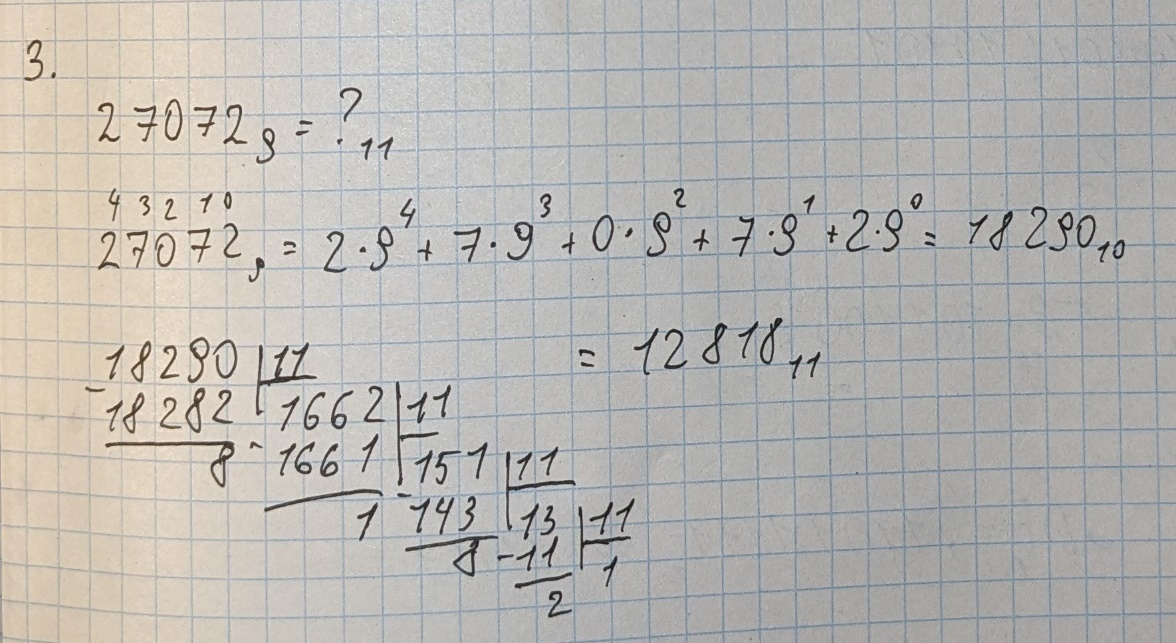 3.
27072₉ = ?₁₁
4 3 2 1 0
27072₉ = 2·9⁴ + 7·9³ + 0·9² + 7·9¹ + 2·9⁰ = 18290₁₀
18290 | 11 = 12818₁₁
- 18282 | 1662 | 11
8 - 1661 | 151 | 11
1 - 143 | 13 | 11
8 - 11 | 1
2